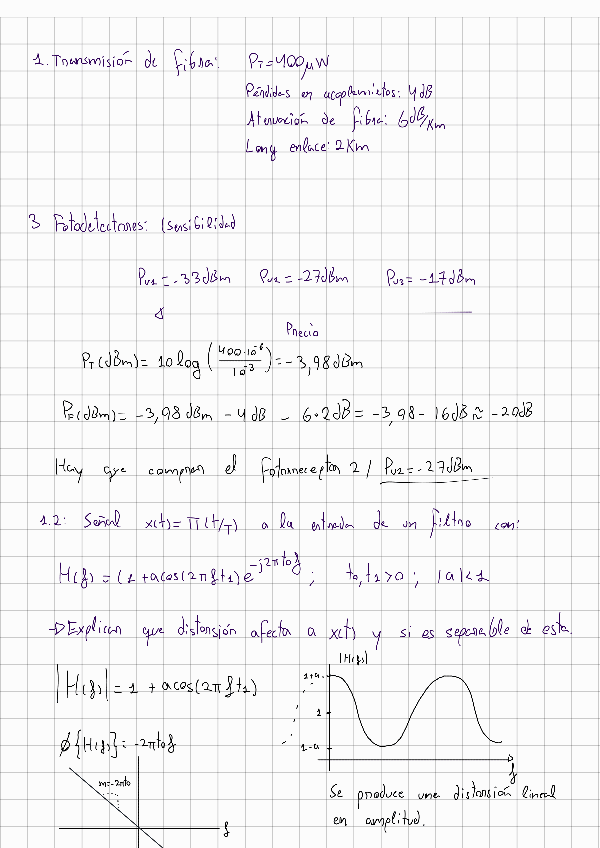 1. Transmisión de fibra: P_T = 400 μW
Pérdidas en acoplamientos: 4 dB
Atenuación de fibra: 6 dB/Km
Long enlace: 2 Km
3 Fotodetectores: (sensibilidad
P_U1 = -33 dBm P_U2 = -27 dBm P_U3 = -17 dBm
Precio
P_T (dBm) = 10 log (400·10^-6 / 10^-3) = -3,98 dBm
(dBm) = -3,98 dBm - 4 dB - 6·2 dB = -3,98 - 16 dB ≈ -20 dB
Hay que comprar el Fotorreceptor 2 / P_U2 = -27 dBm
1.2: Señal x(t) = Π(t/T) a la entrada de un filtro con:
H(f) = (1 + a cos(2π f t1) e^-j2π t0 f ; t0, t1 > 0 ; |a| < 1
→ Explicar que distorsión afecta a x(t) y si es separable de esta.
|H(f)| = 1 + a cos(2π f t1)
|H(f)|
1+a
1
1-a
f
φ{H(f)} = -2π t0 f
m = -2π t0
f
Se produce una distorsión lineal
en amplitud.